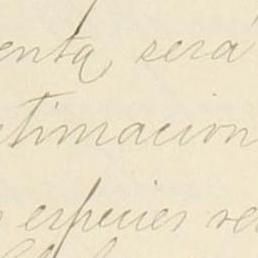 enta será
timacion
especies re